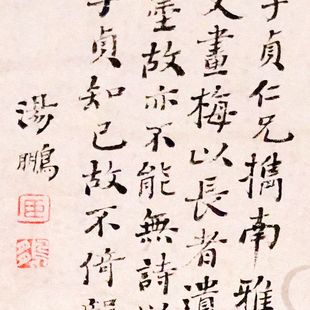 子貞仁兄攜南雅
畫梅以長者遺
墨故亦不能無詩以
子貞知己故不倚
湯鵬